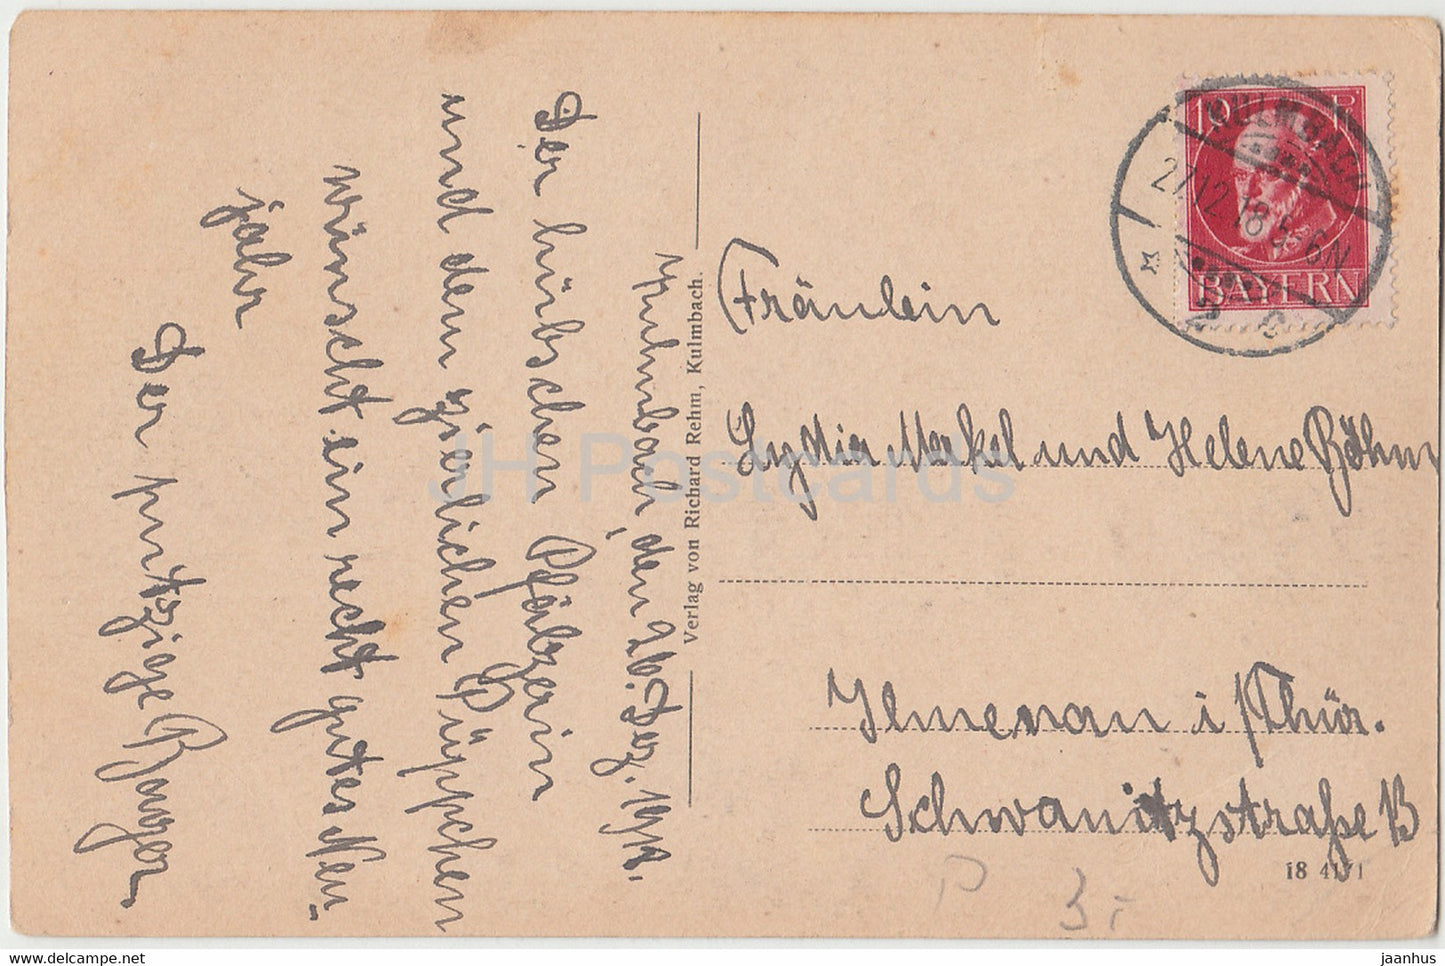 Kulmbach, den 26. Dez. 1918.
Der hübschen Pfälzerin
und dem zierlichen Püppchen
wünscht ein recht gutes Neu-
jahr
Der putzige
Verlag von Richard Rehm, Kulmbach.
10 P.
BAYERN
KULMBACH
27 12 18 5-6N
Fräulein
Lydia Merkel und Helene Böhm
Ilmenau i/Thür.
Schwanitzstraße 13
18 4171
P 3.-
JH Postcards
hippostcard